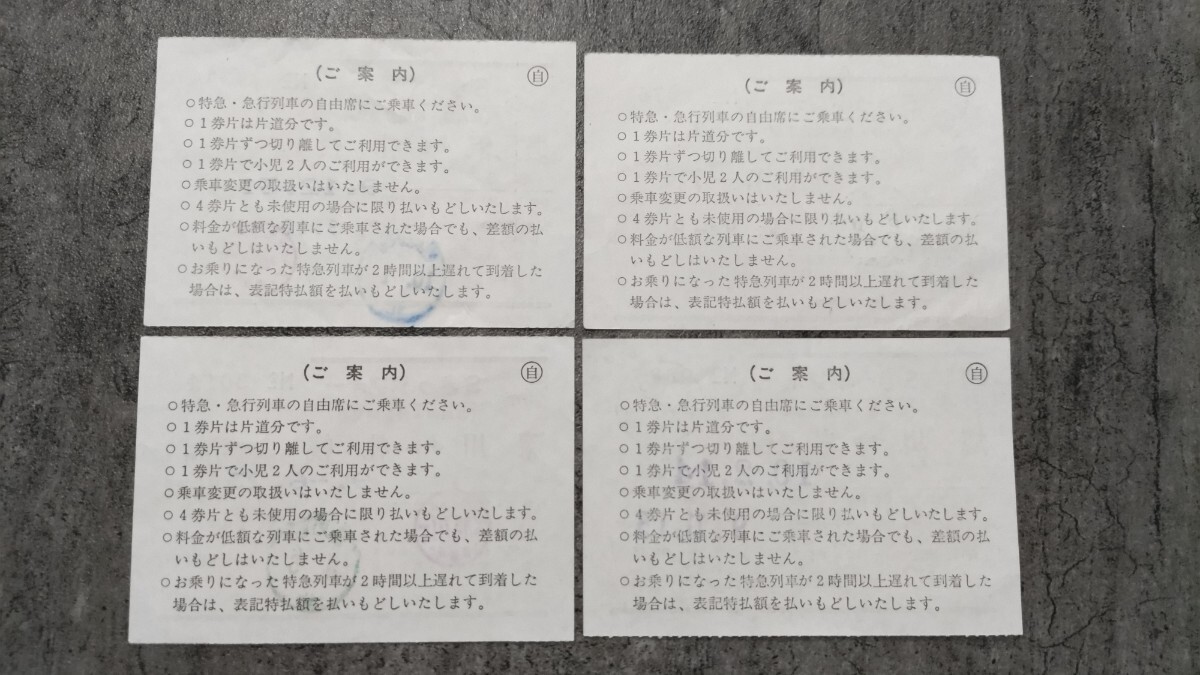 (ご 案 内) 自
○特急・急行列車の自由席にご乗車ください。
○1券片は片道分です。
○1券片ずつ切り離してご利用できます。
○1券片で小児2人のご利用ができます。
○乗車変更の取扱いはいたしません。
○4券片とも未使用の場合に限り払いもどしいたします。
○料金が低額な列車にご乗車された場合でも、差額の払
いもどしはいたしません。
○お乗りになった特急列車が2時間以上遅れて到着した
場合は、表記特払額を払いもどしいたします。
(ご 案 内) 自
○特急・急行列車の自由席にご乗車ください。
○1券片は片道分です。
○1券片ずつ切り離してご利用できます。
○1券片で小児2人のご利用ができます。
○乗車変更の取扱いはいたしません。
○4券片とも未使用の場合に限り払いもどしいたします。
○料金が低額な列車にご乗車された場合でも、差額の払
いもどしはいたしません。
○お乗りになった特急列車が2時間以上遅れて到着した
場合は、表記特払額を払いもどしいたします。
(ご 案 内) 自
○特急・急行列車の自由席にご乗車ください。
○1券片は片道分です。
○1券片ずつ切り離してご利用できます。
○1券片で小児2人のご利用ができます。
○乗車変更の取扱いはいたしません。
○4券片とも未使用の場合に限り払いもどしいたします。
○料金が低額な列車にご乗車された場合でも、差額の払
いもどしはいたしません。
○お乗りになった特急列車が2時間以上遅れて到着した
場合は、表記特払額を払いもどしいたします。
(ご 案 内) 自
○特急・急行列車の自由席にご乗車ください。
○1券片は片道分です。
○1券片ずつ切り離してご利用できます。
○1券片で小児2人のご利用ができます。
○乗車変更の取扱いはいたしません。
○4券片とも未使用の場合に限り払いもどしいたします。
○料金が低額な列車にご乗車された場合でも、差額の払
いもどしはいたしません。
○お乗りになった特急列車が2時間以上遅れて到着した
場合は、表記特払額を払いもどしいたします。